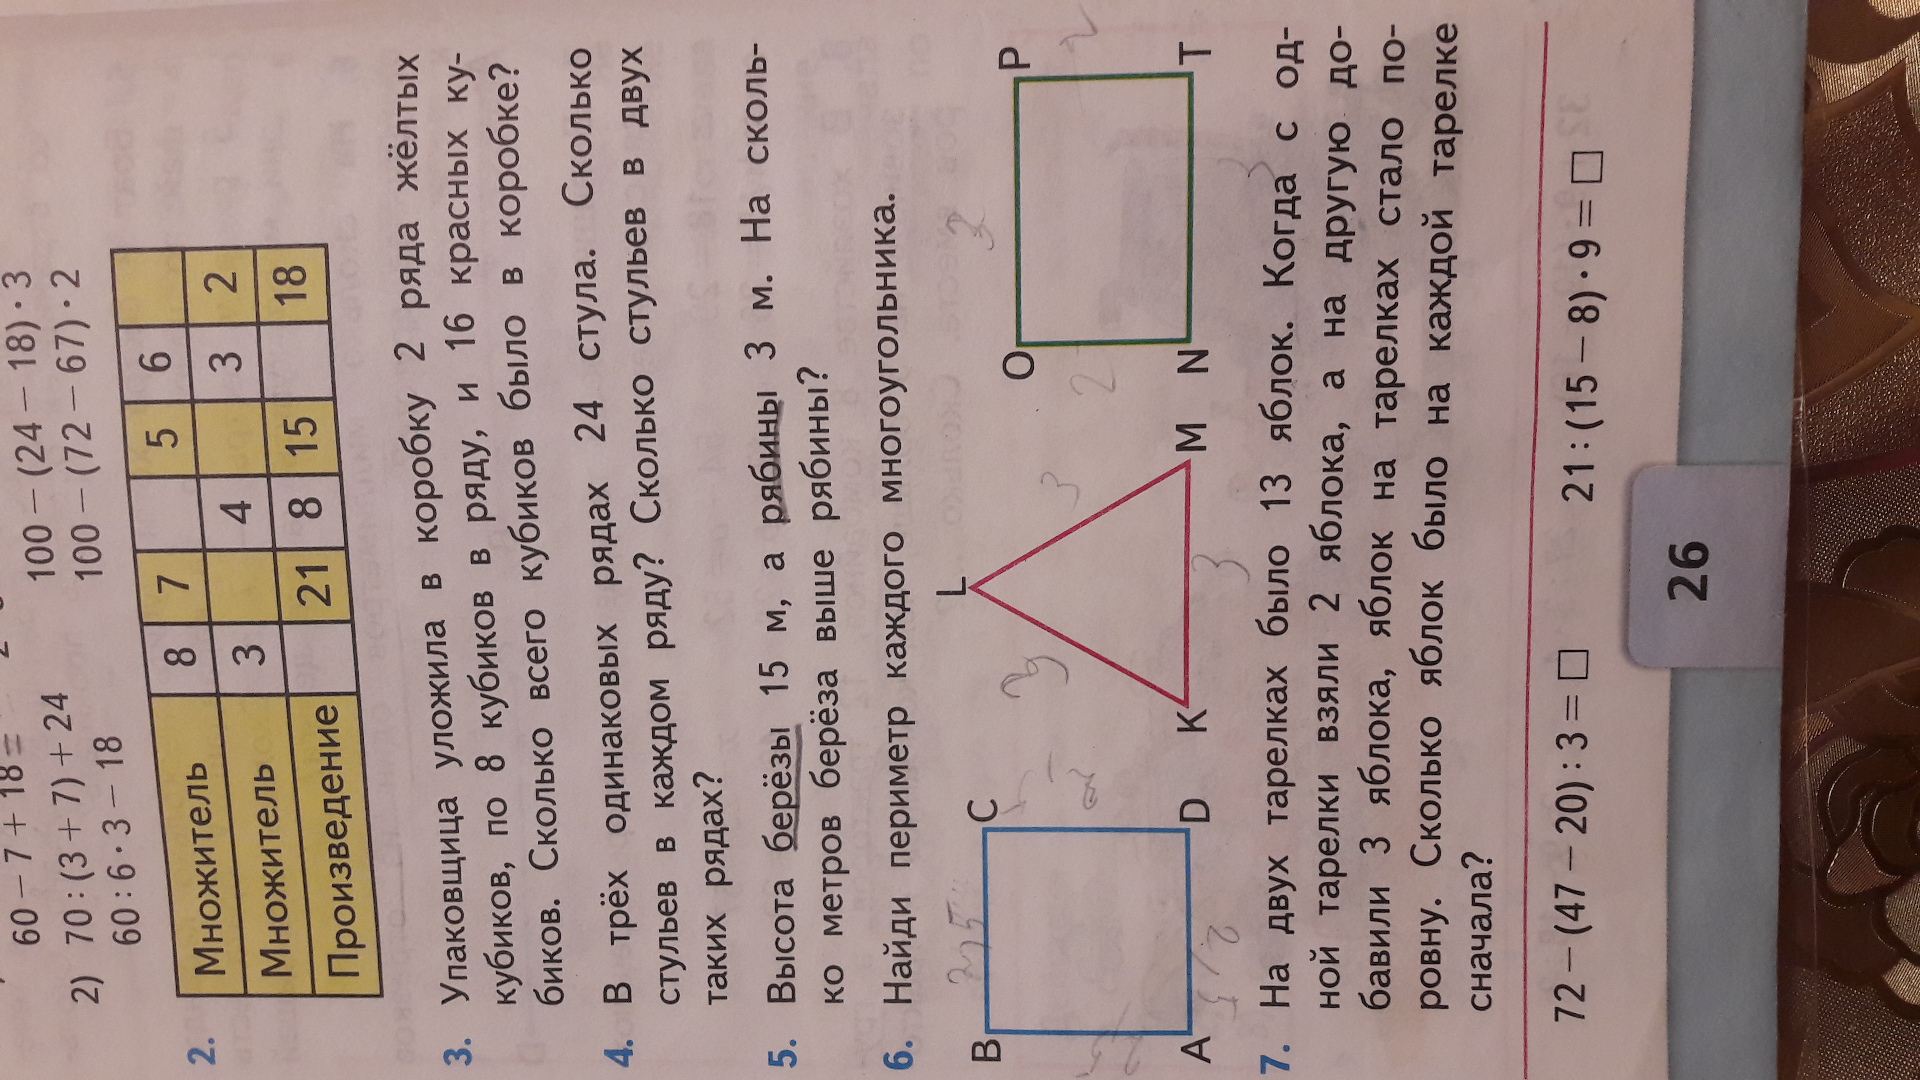 60 − 7 + 18 =
2) 70 : (3 + 7) + 24 100 − (24 − 18) · 3
60 : 6 · 3 − 18 100 − (72 − 67) · 2
2. Множитель 8 7 5 6
Множитель 3 4 3 2
Произведение 21 8 15 18
3. Упаковщица уложила в коробку 2 ряда жёлтых
кубиков, по 8 кубиков в ряду, и 16 красных ку-
биков. Сколько всего кубиков было в коробке?
4. В трёх одинаковых рядах 24 стула. Сколько
стульев в каждом ряду? Сколько стульев в двух
таких рядах?
5. Высота берёзы 15 м, а рябины 3 м. На сколь-
ко метров берёза выше рябины?
6. Найди периметр каждого многоугольника.
B C L O P
3
3
2
3
A D K M N T
7. На двух тарелках было 13 яблок. Когда с од-
ной тарелки взяли 2 яблока, а на другую до-
бавили 3 яблока, яблок на тарелках стало по-
ровну. Сколько яблок было на каждой тарелке
сначала?
72 − (47 − 20) : 3 = □ 21 : (15 − 8) · 9 = □
26